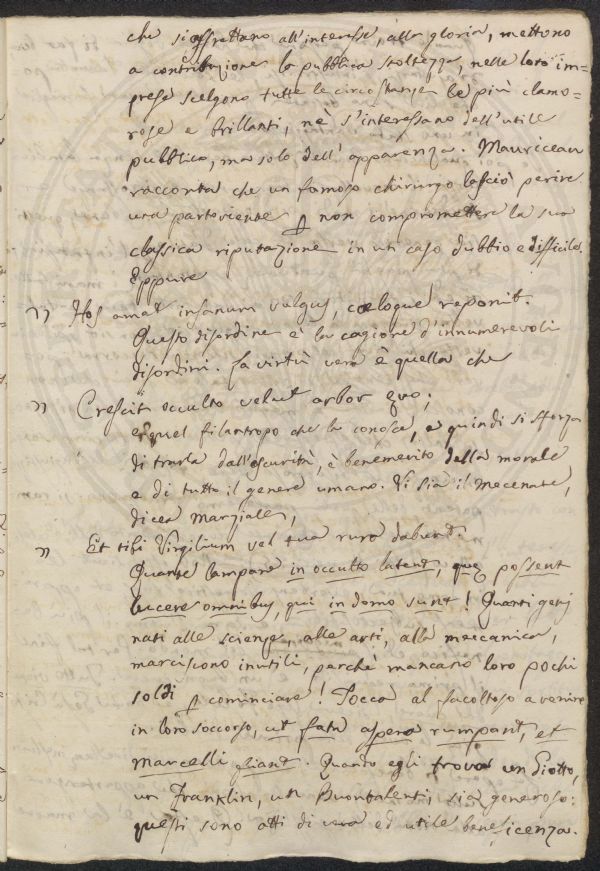 che si affrettano all'interesse, alla gloria, mettono
a contribuzione la pubblica stoltezza, nelle loro im=
prese scelgono tutte le circostanze le più clamo=
rose e brillanti, nè s'interessano dell'utile
pubblico, ma solo dell'apparenza. Mauriceau
racconta che un famoso chirurgo lasciò perire
una partoriente p non compromettere la sua
classica riputazione in un caso dubbio e difficile.
Eppure
" Hos amat insanum vulgus, coeloque reponit.
Questo disordine è la cagione d'innumerevoli
disordini. La virtù vera è quella che
" Crescit occulto velut arbor evo;
e quel filantropo che la conosce, e quindi si sforza
di trarla dall'oscurità, è benemerito della morale
e di tutto il genere umano. Vi sia il mecenate,
dicea Marziale,
" Et tibi Virgilium vel tua rura dabunt.
Quante lampare in occulto latent, quę possent
lucere omnibus, qui in domo sunt! Quanti genj
nati alle scienze, alle arti, alla meccanica,
marciscono inutili, perchè mancano loro pochi
soldi p cominciare! Tocca al facoltoso a venire
in loro soccorso, ut fata aspera rumpant, et
Marcelli fiant. Quando egli trova un Giotto,
un Franklin, un Buontalenti, sia generoso:
questi sono atti di vera ed utile beneficenza.